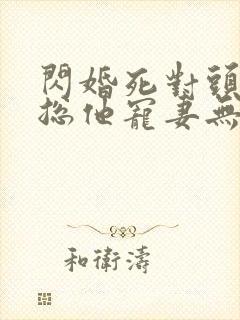 閃婚死對頭
总他寵妻無
和衛濤